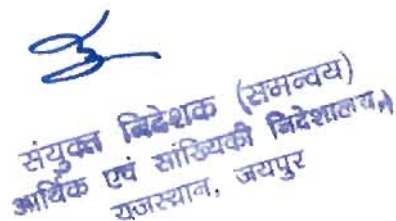 संयुक्त निदेशक (समन्वय)
आर्थिक एवं सांख्यिकी निदेशालय,
राजस्थान, जयपुर